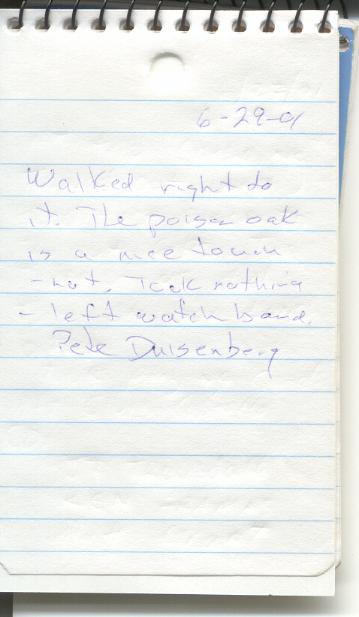 6-29-01
Walked right to
it. The poison oak
is a nice touch
-not. Took nothing
- left watch band.
Pete Duisenberg